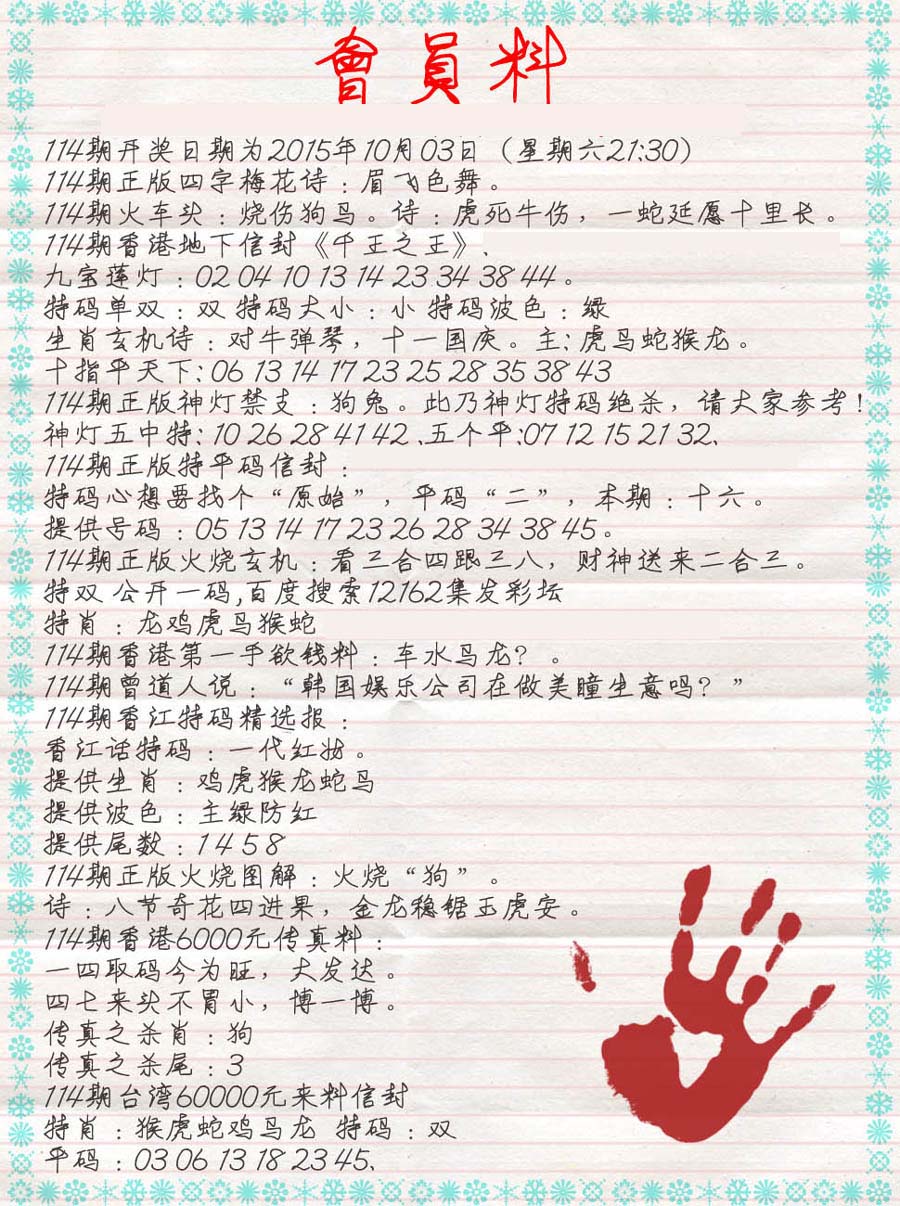 會員料
114期开奖日期为2015年10月03日（星期六21:30）
114期正版四字梅花诗：眉飞色舞。
114期火车头：烧伤狗马。诗：虎死牛伤，一蛇延愿十里长。
114期香港地下信封《千王之王》、
九宝莲灯：02 04 10 13 14 23 34 38 44。
特码单双：双 特码大小：小 特码波色：绿
生肖玄机诗：对牛弹琴，十一国庆。主：虎马蛇猴龙。
十指平天下：06 13 14 17 23 25 28 35 38 43
114期正版神灯禁支：狗兔。此乃神灯特码绝杀，请大家参考！
神灯五中特：10 26 28 41 42、五个平:07 12 15 21 32、
114期正版特平码信封：
特码心想要找个“原始”，平码“二”，本期：十六。
提供号码：05 13 14 17 23 26 28 34 38 45。
114期正版火烧玄机：看三合四跟三八，财神送来二合三。
特双 公开一码,百度搜索12162集发彩坛
特肖：龙鸡虎马猴蛇
114期香港第一手欲钱料：车水马龙？。
114期曾道人说：“韩国娱乐公司在做美瞳生意吗？”
114期香江特码精选报：
香江话特码：一代红妆。
提供生肖：鸡虎猴龙蛇马
提供波色：主绿防红
提供尾数：1 4 5 8
114期正版火烧图解：火烧“狗”。
诗：八节奇花四进果，金龙稳锯玉虎安。
114期香港6000元传真料：
一四取码今为旺，大发达。
四七来头不胃小，博一博。
传真之杀肖：狗
传真之杀尾：3
114期台湾60000元来料信封
特肖：猴虎蛇鸡马龙 特码：双
平码：03 06 13 18 23 45、